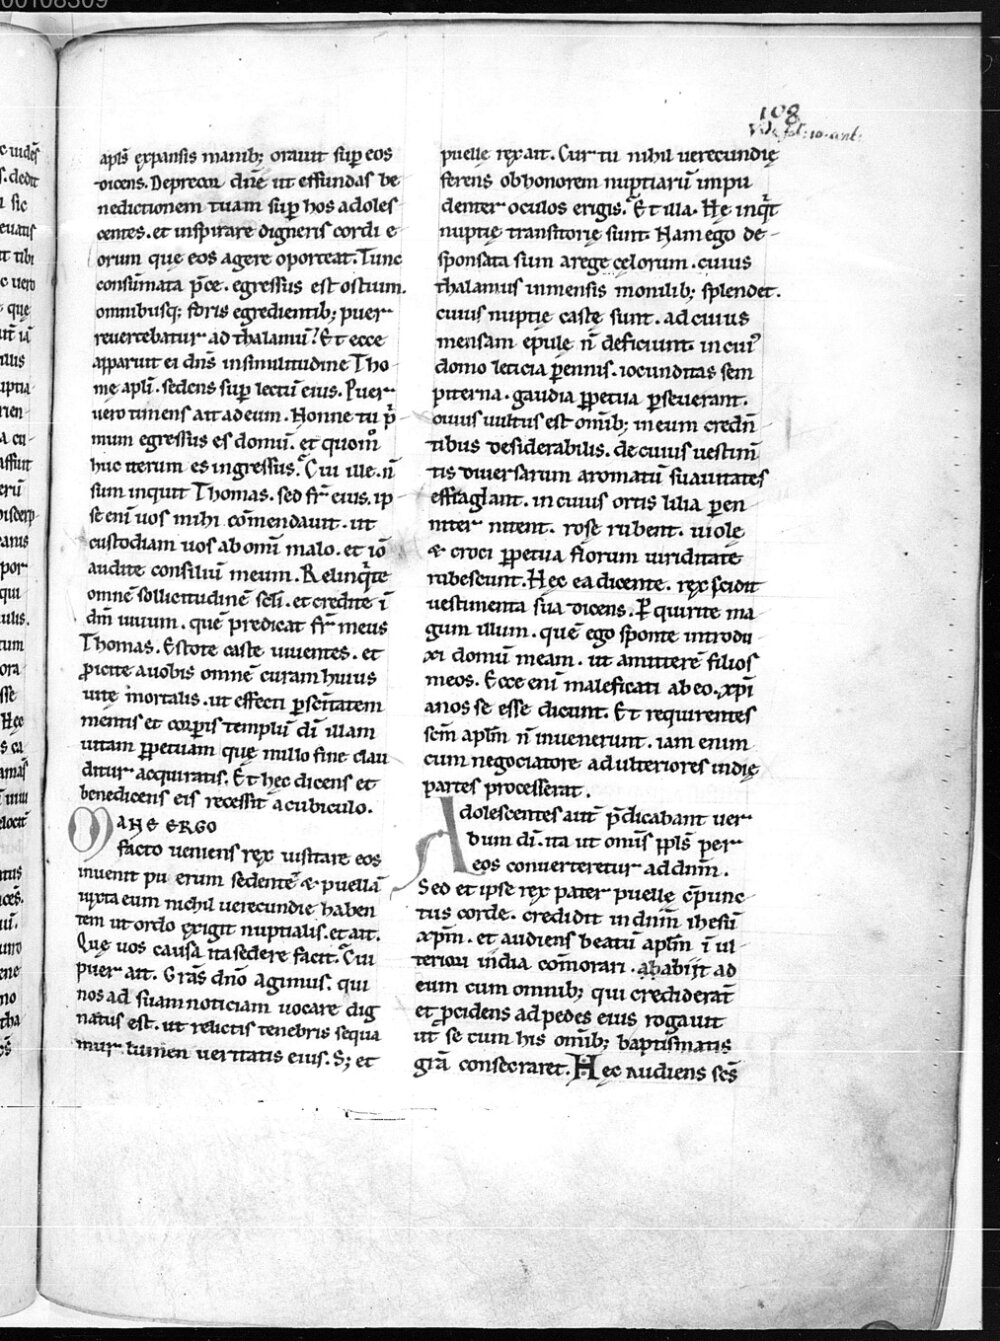 00108309
108
apłs expansis manib; orauit sup eos
dicens. Deprecor dn̄e ut effundas be
nedictionem tuam sup hos adoles
centes. et inspirare digneris cordi e
orum que eos agere oporteat. Tunc
consūmata p̄ce. egressus est ostium.
omnibusq; foris egredientib; puer
reuertebatur ad thalamū. Et ecce
apparuit ei dn̄s insimilitudine Tho
me apłi. sedens sup lectū eius. Puer
uero timens ait ad eum. Nonne tu p̓
mum egressus es domū. et quom̊
huc iterum es ingressus. Cui ille. ñ
sum inquit Thomas. sed fr̄ eius. ip
se eni uos mihi cōmendauit. ut
custodiam uos ab omi malo. et iō
audite consiliū meum. Relinq̓te
omnē sollicitudinē scłi. et credite ī
dm̄ uiuum. quē predicat fr̄ meus
Thomas. Estote caste uiuentes. et
ꝓicite a uobis omnē curam huius
uite mortalis. ut effecti ꝑ scītatem
mentis et corꝑis templū dī illam
uitam ꝑpetuam quę nullo fine clau
ditur acquiratis. Et hec dicens et
benedicens eis recessit a cubiculo.
MANE ERGO
facto ueniens rex uisitare eos
inuenit pu erum sedentē & puellā
iuxta eum nichil uerecundie haben
tem ut ordo exigit nuptialis. et ait.
Que uos causa ita sedere facit. Cui
puer ait. Gras̄ dn̄o agimus. qui
nos ad suam noticiam uocare dig
natus est. ut relictis tenebris sequa
mur lumen ueritatis eius. S; et
puelle rex ait. Cur tu nihil uerecundię
ferens ob honorem nuptiarū inpu
denter oculos erigis. Et illa. Hę inq̓t
nuptię transitorię sunt. Nam ego de
sponsata sum a rege celorum. cuius
thalamus inmensis monilib; splendet.
cuius nuptię castę sunt. ad cuius
mensam epulę ñ deficiunt. in cui᾽
domo leticia ꝑennis. iocunditas sem
piterna. gaudia ꝑpetua ꝑseuerant.
cuius uultus est omīb; in eum credn̄
tibus desiderabilis. de cuius uestim̄
tis diuersarum aromatū suauitates
effraglant. in cuius ortis lilia ꝑen
niter nitent. rosę rubent. uiolę
& croci ꝑpetua florum uiriditate
rubescunt. Hec ea dicente. rex scidit
uestimenta sua dicens. Ꝑ quirite ma
gum illum. quē ego sponte introdu
xi domū meam. ut amitterē filios
meos. Ecce eni maleficati ab eo. xp̄i
anos se esse dicunt. Et requirentes
scm̄ aplm̄ ñ inuenerunt. iam enim
cum negociatore ad ulteriores indię
partes processerat.
Adolescentes aut̄ p̄dicabant uer
bum dī. ita ut omīs ꝑpłs per
eos conuerteretur ad dnm̄.
Sed et ipse rex pater puelle cp̄unc
tus corde. credidit in dnm̄ ihesū
xp̄m. et audiens beatū aplm̄ ī ul
teriori india cōmorari. ab abiit ad
eum cum omnib; qui crediderāt
et ꝓcidens ad pedes eius rogauit
ut se cum his omīb; baptismatis
grā consecraret. Hec audiens scs̄